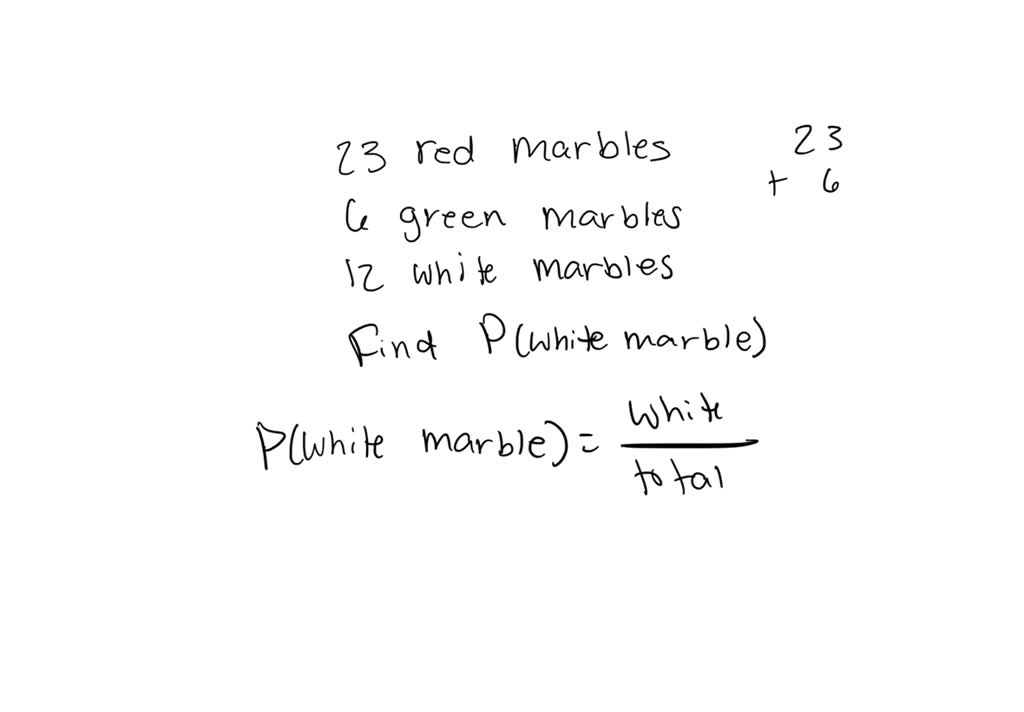 23 red marbles
6 green marbles
12 white marbles
Find P(white marble)
P(white marble) = white
total
23
+ 6